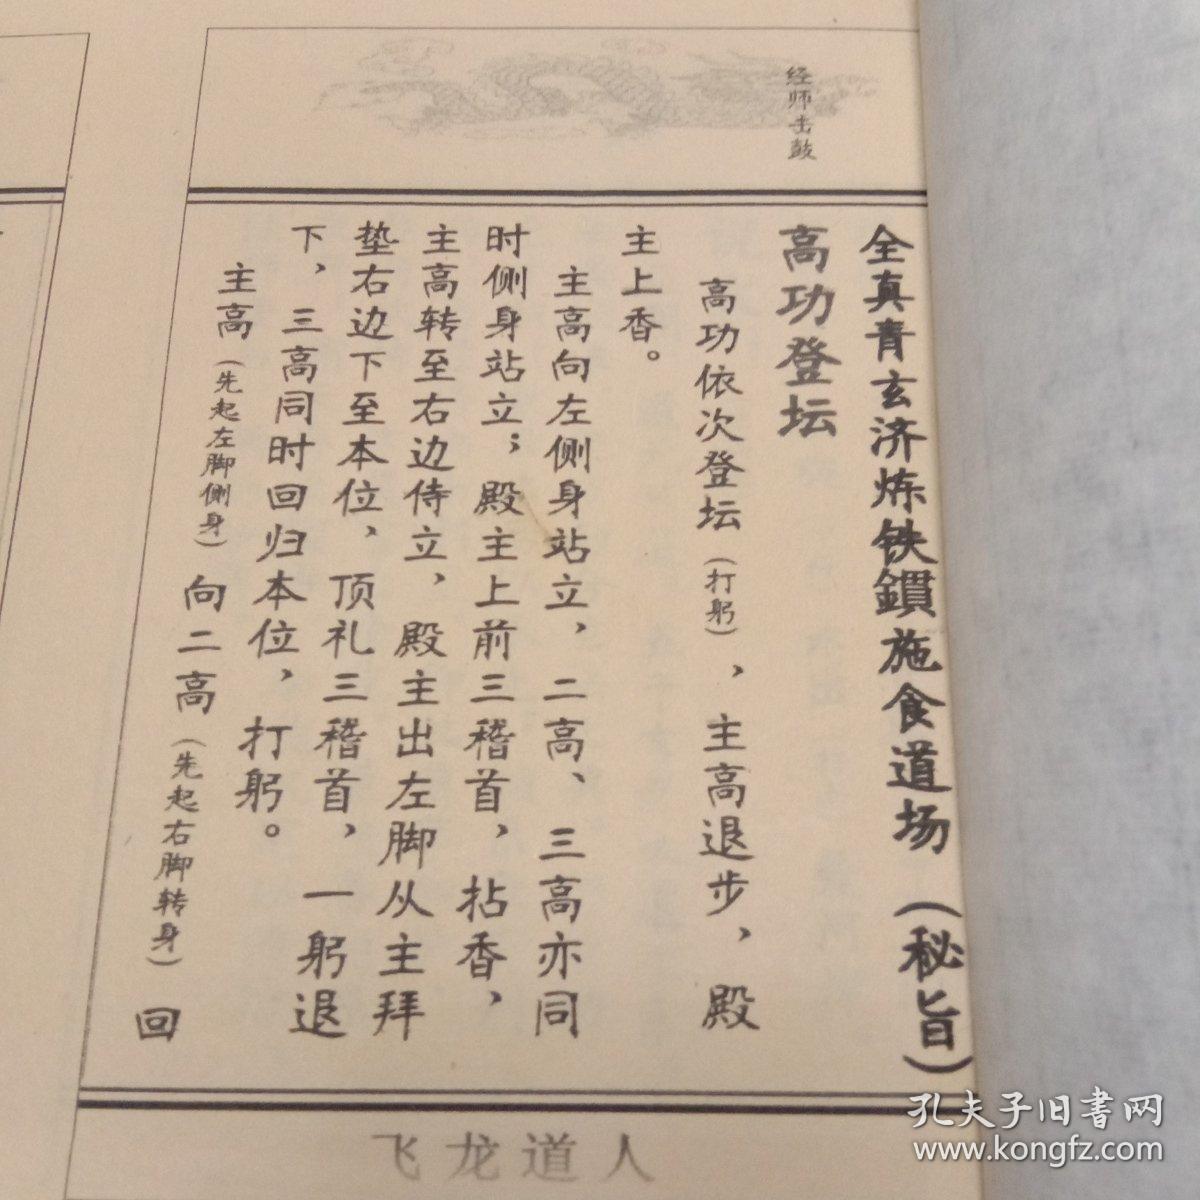 经师击鼓
全真青玄济炼铁鑵施食道场（秘旨）
高功登坛
高功依次登坛（打躬），主高退步，殿
主上香。
主高向左侧身站立，二高、三高亦同
时侧身站立；殿主上前三稽首，拈香，
主高转至右边侍立，殿主出左脚从主拜
垫右边下至本位，顶礼三稽首，一躬退
下，三高同时回归本位，打躬。
主高（先起左脚侧身）向二高（先起右脚转身）回
飞龙道人
孔夫子旧书网
www.kongfz.com